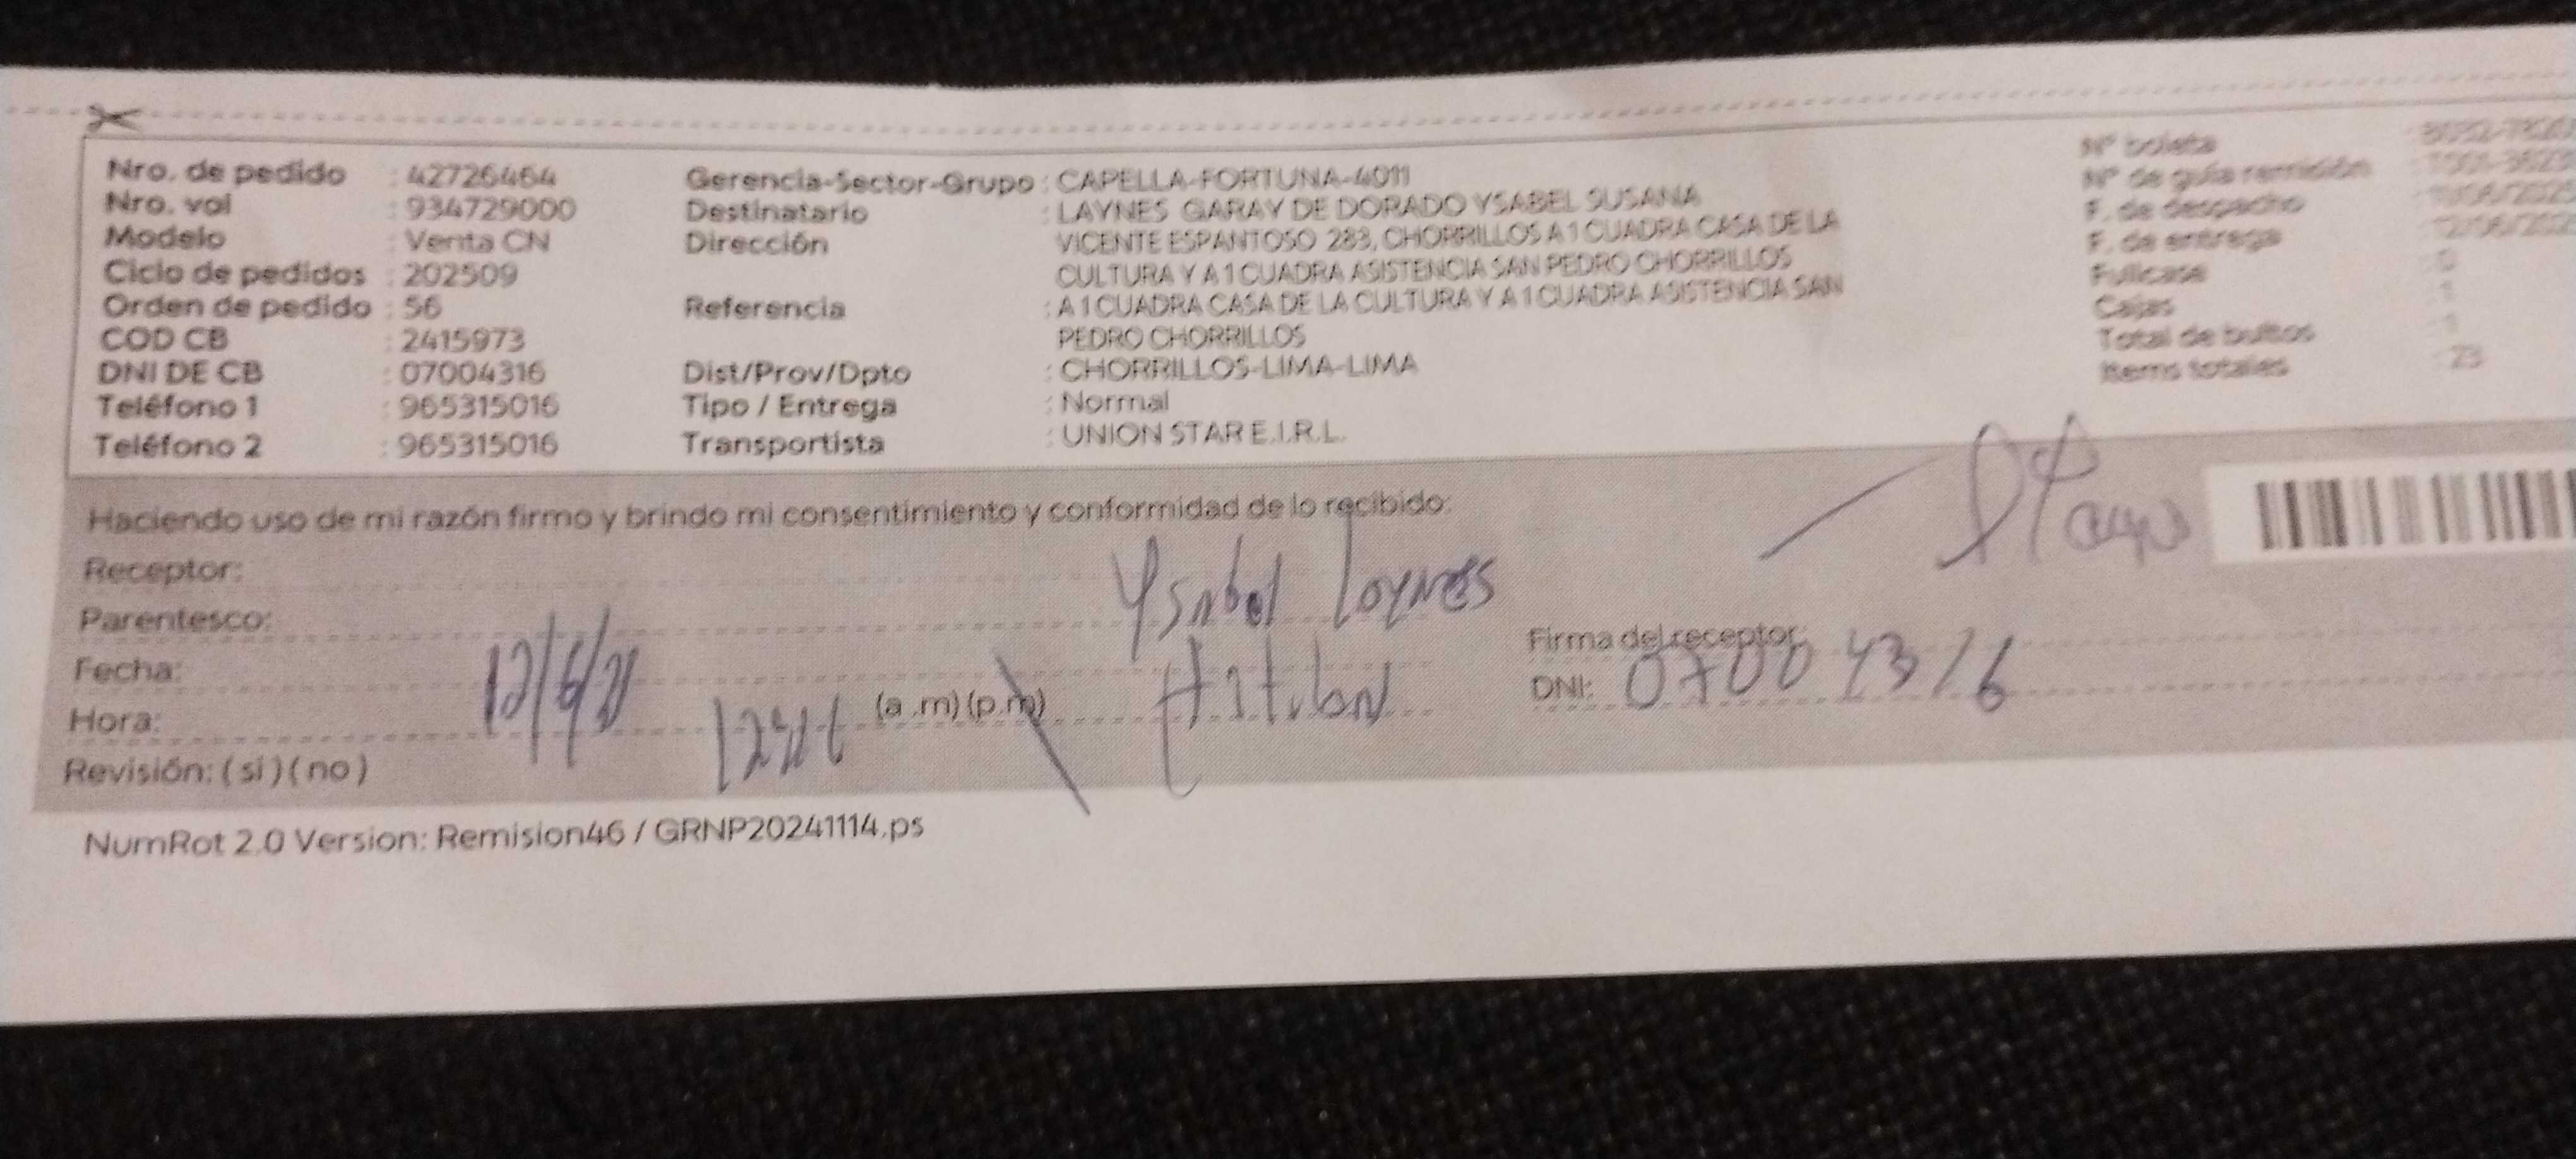 Nro. de pedido : 42726464
Nro. vol : 934729000
Modelo : Venta CN
Ciclo de pedidos : 202509
Orden de pedido : 56
COD CB : 2415973
DNI DE CB : 07004316
Teléfono 1 : 965315016
Teléfono 2 : 965315016
Gerencia-Sector-Grupo : CAPELLA-FORTUNA-4011
Destinatario : LAYNES GARAY DE DORADO YSABEL SUSANA
Dirección VICENTE ESPANTOSO 283, CHORRILLOS A 1 CUADRA CASA DE LA
CULTURA Y A 1 CUADRA ASISTENCIA SAN PEDRO CHORRILLOS
Referencia : A 1 CUADRA CASA DE LA CULTURA Y A 1 CUADRA ASISTENCIA SAN
PEDRO CHORRILLOS
Dist/Prov/Dpto : CHORRILLOS-LIMA-LIMA
Tipo / Entrega : Normal
Transportista : UNION STAR E.I.R.L.
N° boleta
N° de guía remisión
F. de despacho
F. de entrega
Fullcase : 0
Cajas : 1
Total de bultos : 1
Items totales : 23
Haciendo uso de mi razón firmo y brindo mi consentimiento y conformidad de lo recibido:
Receptor: Ysabel Laynes
Parentesco: Titular
Fecha:
Hora: (a .m) (p.m)
Revisión: ( si ) ( no )
Firma del receptor:
DNI: 07004316
NumRot 2.0 Version: Remision46 / GRNP20241114.ps